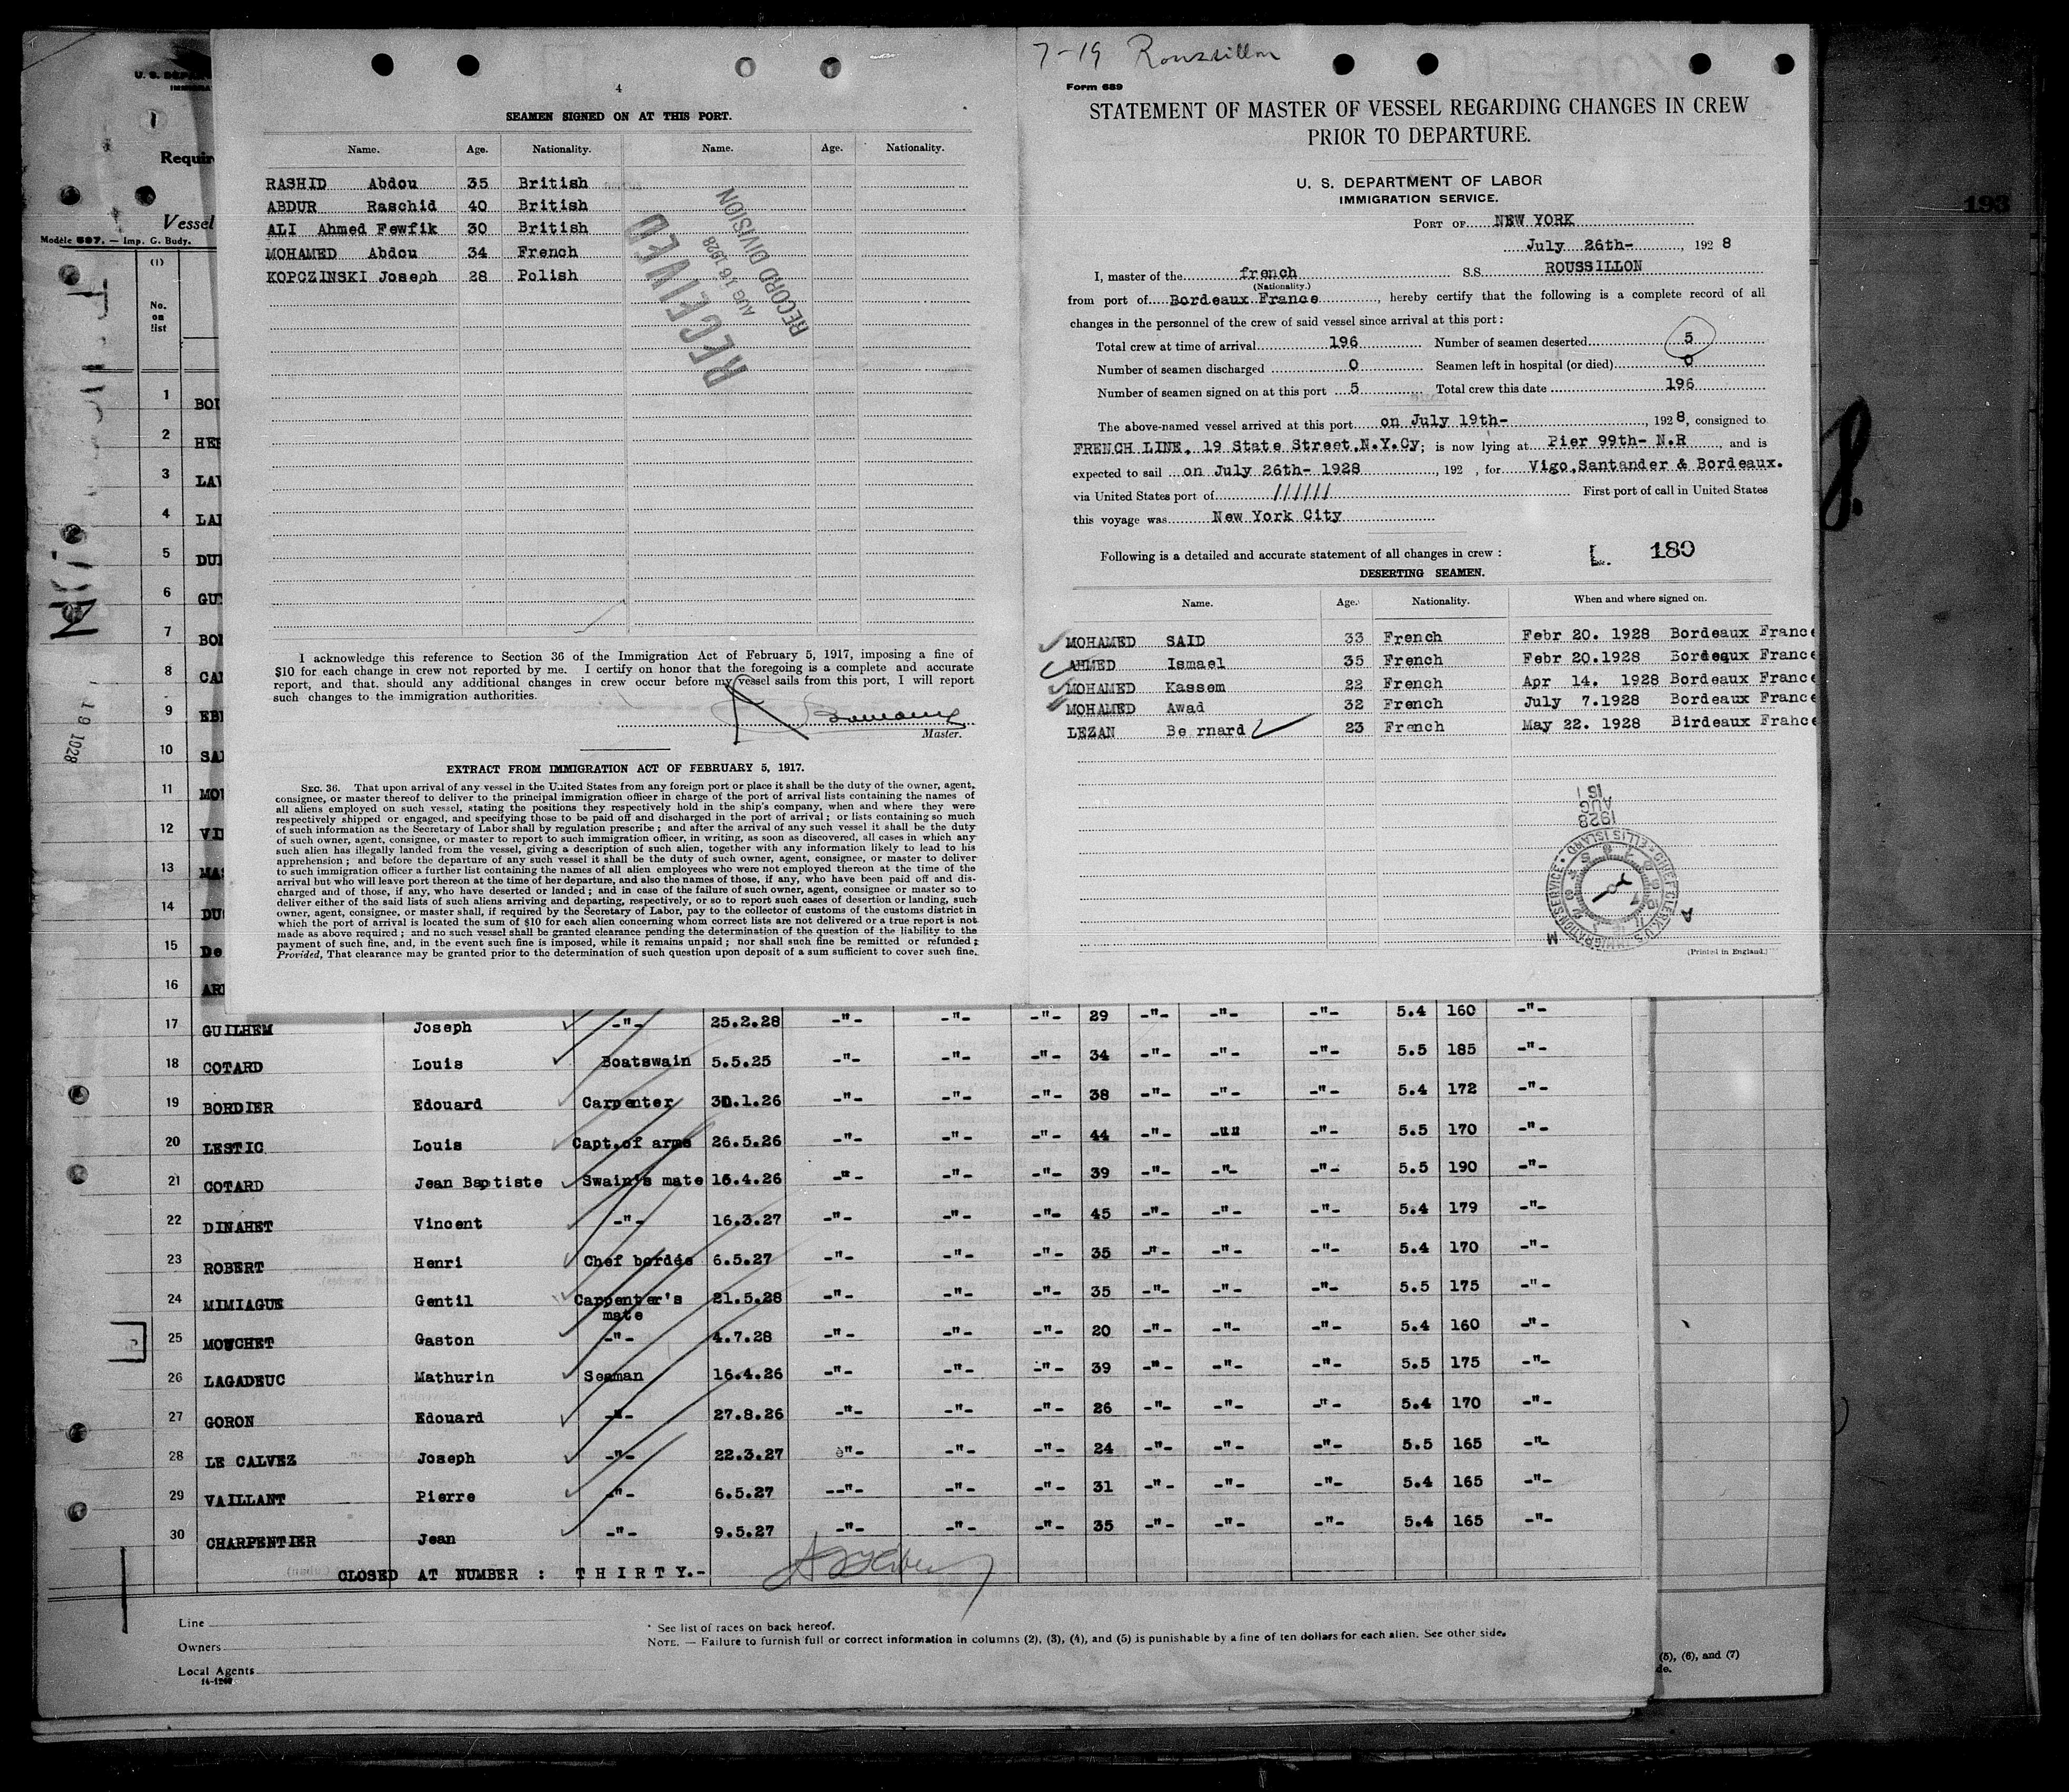 7-19 Roussillon
4
SEAMEN SIGNED ON AT THIS PORT.
Name. Age. Nationality. Name. Age. Nationality.
RASHID Abdou 35 British
ABDUR Raschid 40 British
ALI Ahmed Fewfik 30 British
MOHAMED Abdou 34 French
KOPCZINSKI Joseph 28 Polish
RECEIVED
AUG 16 1928
RECORD DIVISION
I acknowledge this reference to Section 36 of the Immigration Act of February 5, 1917, imposing a fine of
$10 for each change in crew not reported by me. I certify on honor that the foregoing is a complete and accurate
report, and that should any additional changes in crew occur before my vessel sails from this port, I will report
such changes to the immigration authorities.
Master.
EXTRACT FROM IMMIGRATION ACT OF FEBRUARY 5, 1917.
SEC. 36. That upon arrival of any vessel in the United States from any foreign port or place it shall be the duty of the owner, agent,
consignee, or master thereof to deliver to the principal immigration officer in charge of the port of arrival lists containing the names of
all aliens employed on such vessel, stating the positions they respectively hold in the ship's company, when and where they were
respectively shipped or engaged, and specifying those to be paid off and discharged in the port of arrival; or lists containing so much
of such information as the Secretary of Labor shall by regulation prescribe; and after the arrival of any such vessel it shall be the duty
of such owner, agent, consignee, or master to report to such immigration officer, in writing, as soon as discovered, all cases in which any
such alien has illegally landed from the vessel, giving a description of such alien, together with any information likely to lead to his
apprehension; and before the departure of any such vessel it shall be the duty of such owner, agent, consignee, or master to deliver
to such immigration officer a further list containing the names of all alien employees who were not employed thereon at the time of the
arrival but who will leave port thereon at the time of her departure, and also the names of those, if any, who have been paid off and dis-
charged and of those, if any, who have deserted or landed; and in case of the failure of such owner, agent, consignee or master so to
deliver either of the said lists of such aliens arriving and departing, respectively, or so to report such cases of desertion or landing, such
owner, agent, consignee, or master shall, if required by the Secretary of Labor, pay to the collector of customs of the customs district in
which the port of arrival is located the sum of $10 for each alien concerning whom correct lists are not delivered or a true report is not
made as above required; and no such vessel shall be granted clearance pending the determination of the question of the liability to the
payment of such fine, and, in the event such fine is imposed, while it remains unpaid; nor shall such fine be remitted or refunded:
Provided, That clearance may be granted prior to the determination of such question upon deposit of a sum sufficient to cover such fine.
Form 689
STATEMENT OF MASTER OF VESSEL REGARDING CHANGES IN CREW
PRIOR TO DEPARTURE.
U. S. DEPARTMENT OF LABOR
IMMIGRATION SERVICE.
PORT OF NEW YORK
July 26th- , 192 8
I, master of the french S.S. ROUSSILLON
(Nationality.)
from port of Bordeaux France , hereby certify that the following is a complete record of all
changes in the personnel of the crew of said vessel since arrival at this port:
Total crew at time of arrival 196 Number of seamen deserted 5
Number of seamen discharged 0 Seamen left in hospital (or died) 0
Number of seamen signed on at this port 5 Total crew this date 196
The above-named vessel arrived at this port on July 19th- , 192 8, consigned to
FRENCH LINE, 19 State Street,N.Y.Cy; is now lying at Pier 99th- N.R , and is
expected to sail on July 26th- 1928 , 192 , for Vigo,Santander & Bordeaux.
via United States port of ////// First port of call in United States
this voyage was New York City
Following is a detailed and accurate statement of all changes in crew:
L. 180
DESERTING SEAMEN.
Name. Age. Nationality. When and where signed on.
MOHAMED SAID 33 French Febr 20. 1928 Bordeaux France
AHMED Ismael 35 French Febr 20.1928 Bordeaux France
MOHAMED Kassem 22 French Apr 14. 1928 Bordeaux France
MOHAMED Awad 32 French July 7.1928 Bordeaux France
LEZAN Be rnard 23 French May 22. 1928 Birdeaux France
1928
AUG
CHIEF CLERK U.S. IMMIGRATION SERVICE ELLIS ISLAND
(Printed in England.)
193
8.
1
Vessel
Modèle 597. — Imp. G. Budy.
(1)
No.
on
list
1
2
3
4
5
6
7
8
9
10
11
12
13
14
15 De
16
17 GUILHEM Joseph -"- 25.2.28 -"- -"- -"- 29 -"- -"- -"- 5.4 160 -"-
18 COTARD Louis Boatswain 5.5.25 -"- -"- -"- 34 -"- -"- -"- 5.5 185 -"-
19 BORDIER Edouard Carpenter 30.1.26 -"- -"- -"- 38 -"- -"- -"- 5.4 172 -"-
20 LESTIC Louis Capt.of arms 26.5.26 -"- -"- -"- 44 -"- -"- -"- 5.5 170 -"-
21 COTARD Jean Baptiste Swain's mate 15.4.26 -"- -"- -"- 39 -"- -"- -"- 5.5 190 -"-
22 DINAHET Vincent -"- 16.3.27 -"- -"- -"- 45 -"- -"- -"- 5.4 179 -"-
23 ROBERT Henri Chef bordée 6.5.27 -"- -"- -"- 35 -"- -"- -"- 5.4 170 -"-
24 MIMIAGUE Gentil Carpenter's mate 21.5.28 -"- -"- -"- 35 -"- -"- -"- 5.5 175 -"-
25 MOUCHET Gaston -"- 4.7.28 -"- -"- -"- 20 -"- -"- -"- 5.4 160 -"-
26 LAGADEUC Mathurin Seaman 16.4.26 -"- -"- -"- 39 -"- -"- -"- 5.5 175 -"-
27 GORON Edouard -"- 27.8.26 -"- -"- -"- 26 -"- -"- -"- 5.4 170 -"-
28 LE CALVEZ Joseph -"- 22.3.27 è"- -"- -"- 24 -"- -"- -"- 5.5 165 -"-
29 VAILLANT Pierre -"- 6.5.27 --"- -"- -"- 31 -"- -"- -"- 5.4 165 -"-
30 CHARPENTIER Jean -"- 9.5.27 -"- -"- -"- 35 -"- -"- -"- 5.4 165 -"-
CLOSED AT NUMBER : T H I R T Y.-
Line
Owners
Local Agents
* See list of races on back hereof.
NOTE. — Failure to furnish full or correct information in columns (2), (3), (4), and (5) is punishable by a fine of ten dollars for each alien. See other side.
(5), (6), and (7)